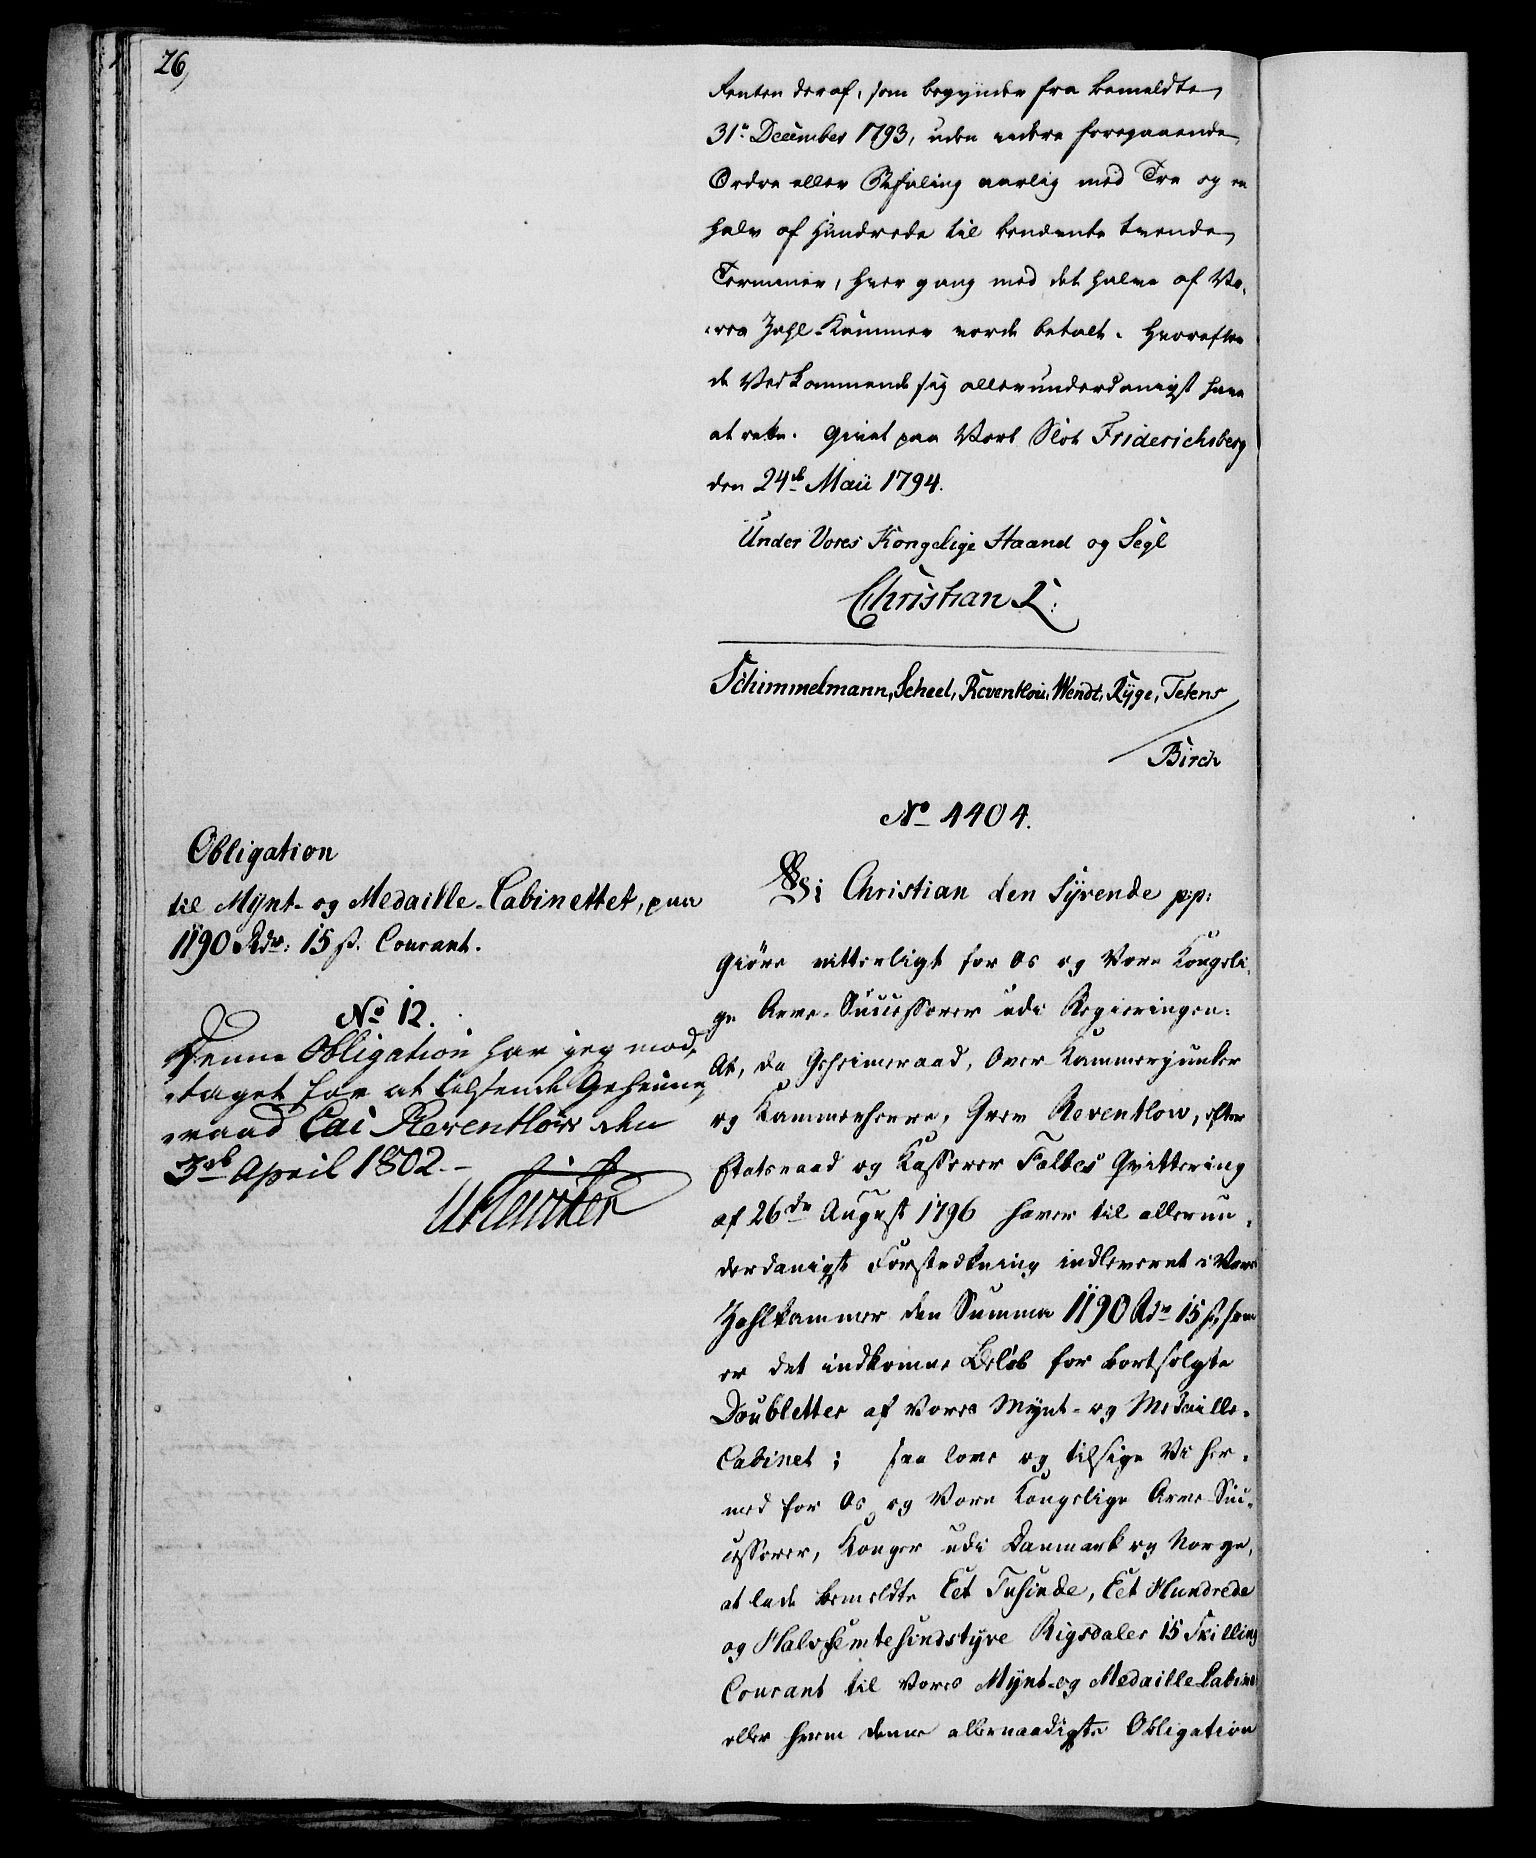 26,
Renten deraf, som begynder fra bemeldte
31te December 1793, uden videre foregaaende
Ordre eller Befaling aarlig med Tre og en
halv af Hundrede til bendente tvende
Terminer, hver gang med det halve af Vo-
-res Zahl-Kammer vorde betalt. Hvorefter
de Vedkommende sig allerunderdanigst have
at rette. Givet paa Vort Slot Friderichsberg
den 24de Maii 1794.
Under Vores Kongelige Haand og Segl
Christian R:
Schimmelmann, Scheel, Reventlow, Wendt, Ryge, Tetens
/ Birch
No 4404.
Obligation
til Mynt- og Medaille-Cabinettet, paa
1190 Rdr: 15 ß. Courant.
No 12.
Denne Obligation har jeg mod-
-taget for at tilsende Geheime-
-raad Cai Reventlow den
3de April 1802.-
Vi Christian den Syvende pp:
Giøre vitterligt for Os og Vore Kongeli-
ge Arve-Successorer udi Regieringen:
At, da Geheimeraad, Over-Kammerjunker
og Kammerherre, Grev Reventlow, efter
Etatsraad og Kasserer Falbes Qvittering
af 26de August 1796 haver til allerun-
derdanigst Forstrækning indleveret i Vores
Zahlkammer den Summa 1190 Rdr 15 ß, som
er det indkomne Beløb for bortsolgte
Doubletter af Vores Mynt- og Medaille-
Cabinet; saa love og tilsige Vi her-
med for Os og Vore Kongelige Arve-Suc-
cessorer, Konger udi Danmark og Norge,
at lade bemeldte Eet Tusinde, Eet Hundrede
og Halvfemtesindstyve Rigsdaler 15 Skilling
Courant til Vores Mynt- og Medaille-Cabinet
eller hvem denne allernaadigste Obligation